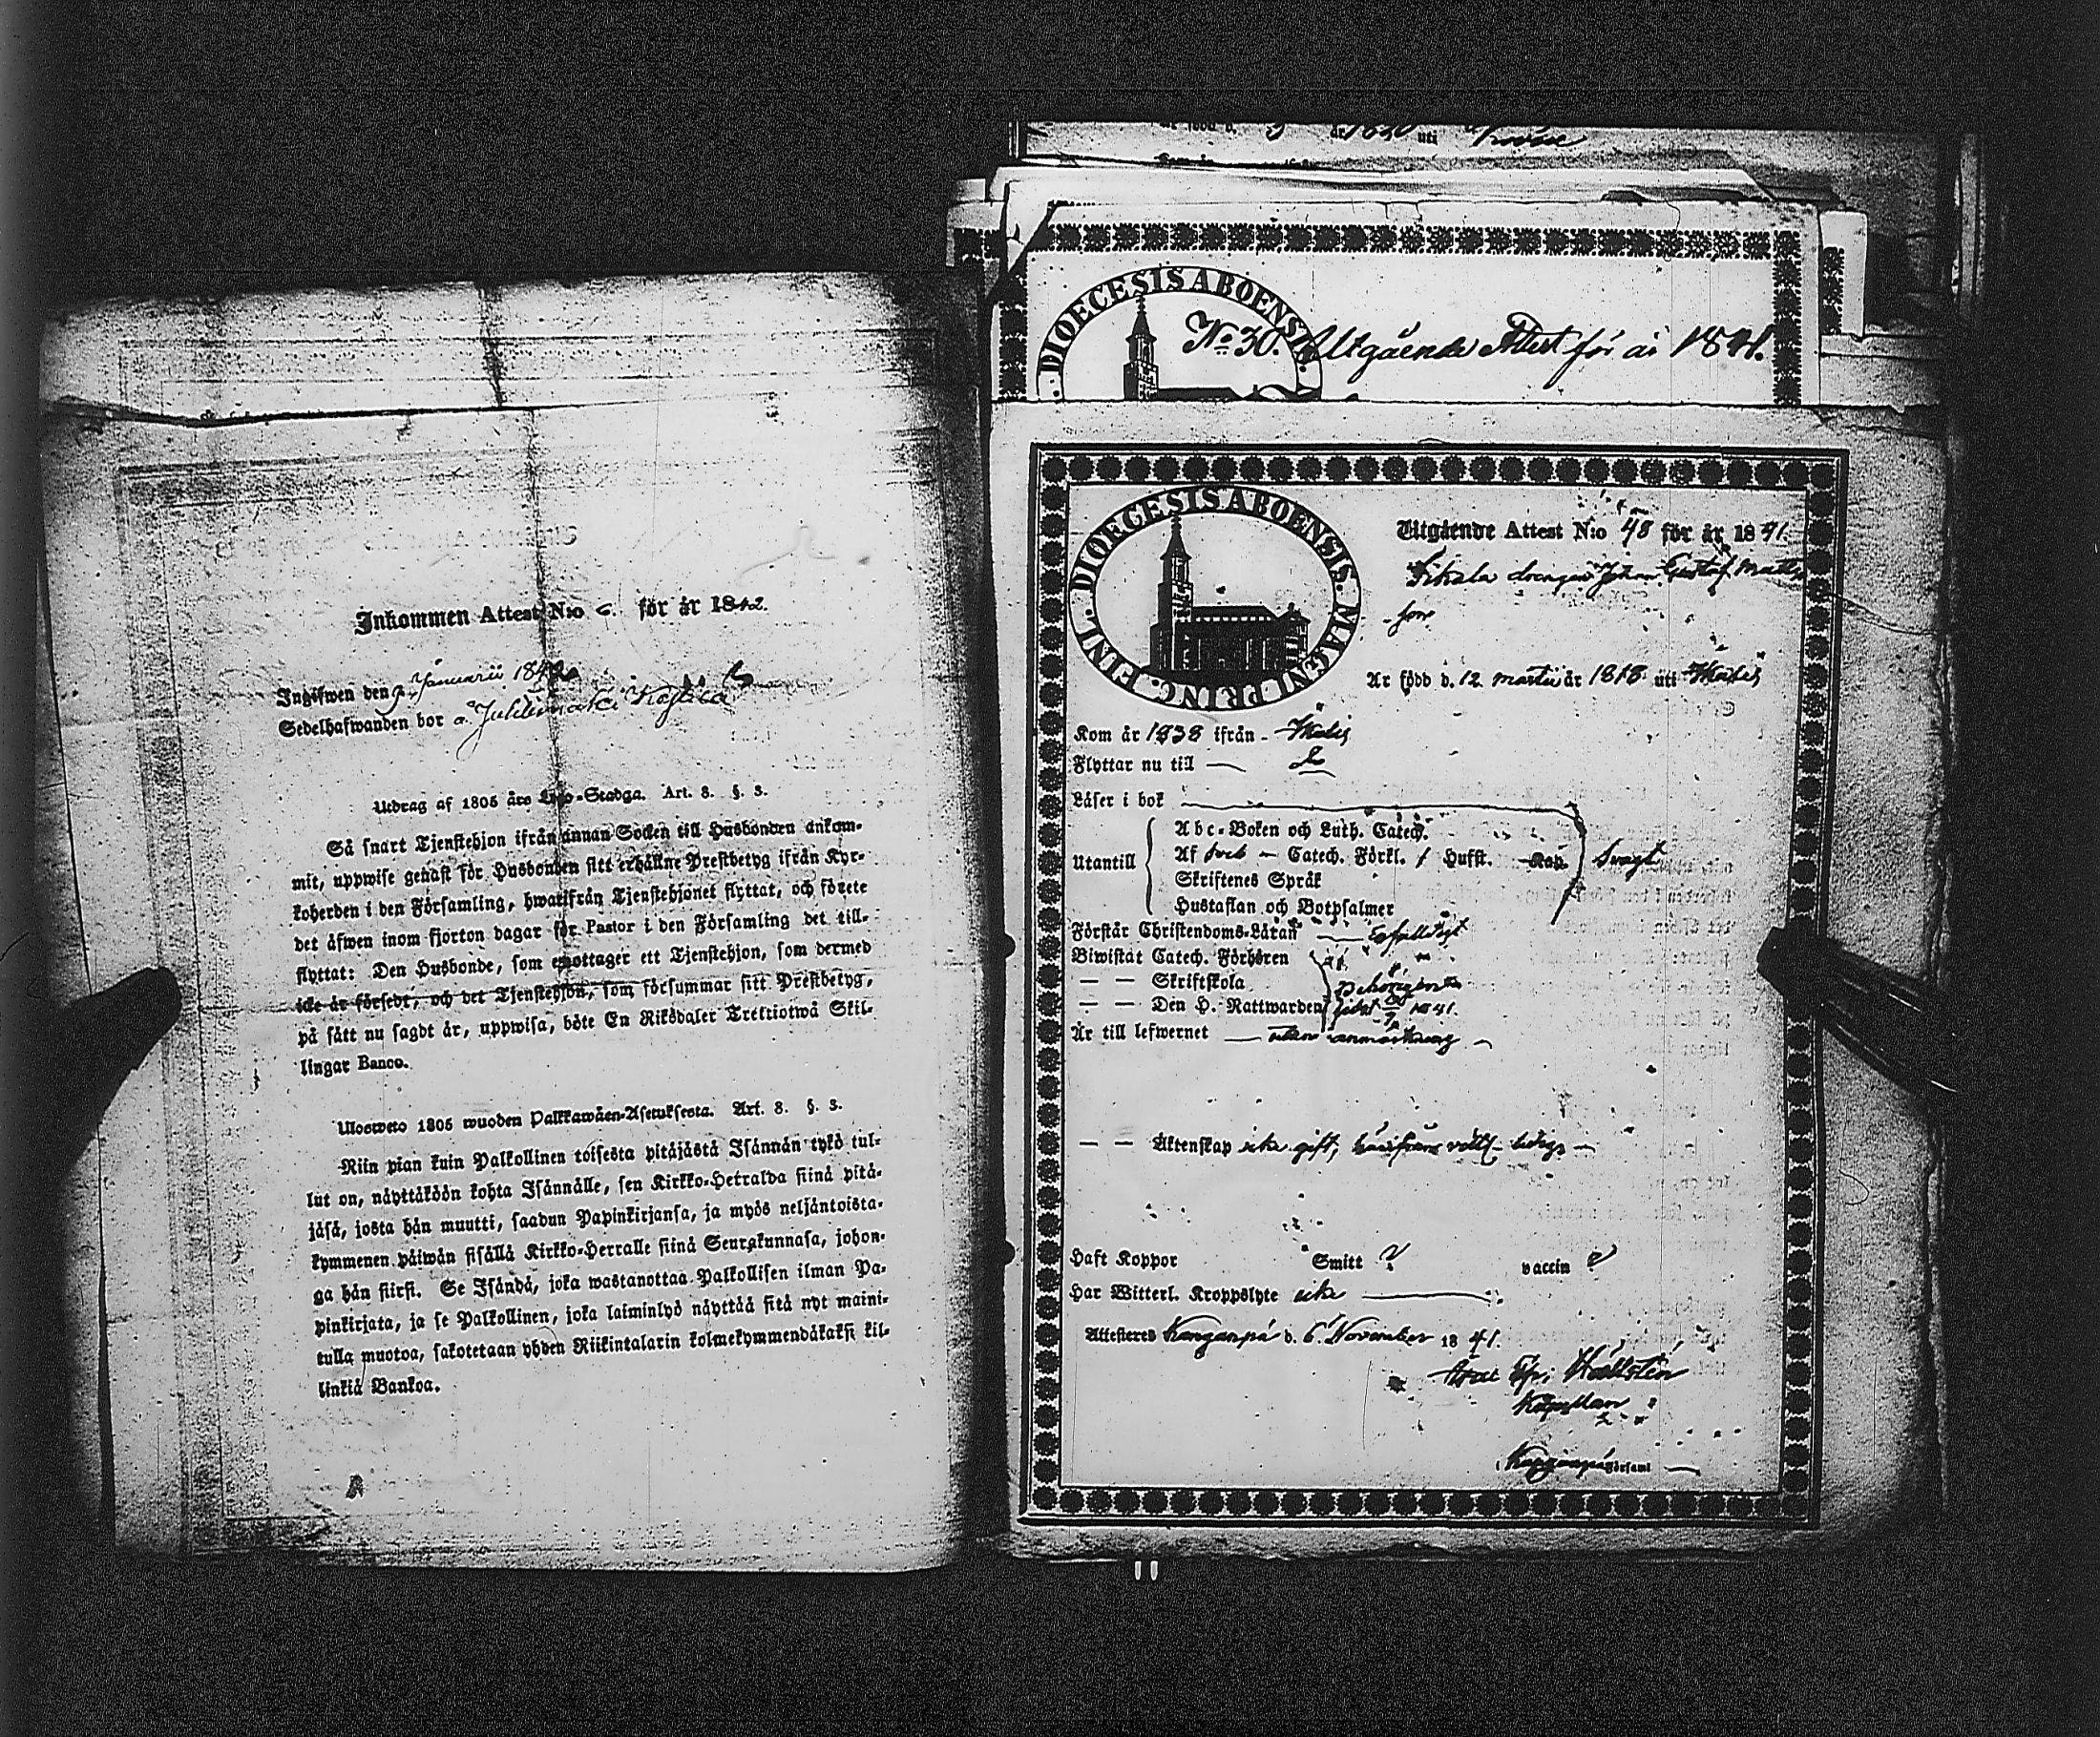 Inkommen Attest N:o 6. för år 1842.
Ingifwen den 2 Januarii 1842
Sedelhafwanden bor å
Utdrag af 1805 års Lego-Stadga. Art. 8. §. 3.
Så snart Tjenstehjon ifrån annan Socken till Husbonden ankom-
mit, uppwise genast för Husbonden sitt erhållne Prestbetyg ifrån Kyr-
koherden i den Församling, hwarifrån Tjenstehjonet flyttat, och förete
det äfwen inom fjorton dagar för Pastor i den Församling det till-
flyttat: Den Husbonde, som emottager ett Tjenstehjon, som dermed
icke är försedt, och det Tjenstehjon, som försummar sitt Prestbetyg,
på sätt nu sagdt är, uppwisa, böte En Riksdaler Trettiotwå Skil-
lingar Banco.
Ulosweto 1805 wuoden Palkkawäen-Asetuksesta. Art. 8. §. 3.
Niin pian kuin Palkollinen toisesta pitäjästä Isännän tykö tul-
lut on, näyttäköön kohta Isännälle, sen Kirkko-Herralda siinä pitä-
jäsä, josta hän muutti, saadun Papinkirjansa, ja myös neljäntoista-
kymmenen päiwän sisällä Kirkko-Herralle siinä Seurakunnasa, johon-
ga hän siirsi. Se Isändä, joka wastanottaa Palkollisen ilman Pa-
pinkirjata, ja se Palkollinen, joka laiminlyö näyttää sitä nyt maini-
tulla muotoa, sakotetaan yhden Riikintalarin kolmekymmendäkaksi kil-
linkiä Bankoa.
uti
DIOECESIS ABOENSIS.
No 30. Utgående Attest för år 1841.
DIOECESIS ABOENSIS. MAGNI PRINC. FINL.
Utgående Attest N:o 48 för år 1841.
drengen Johan Gustaf Matts
son
Är född d. 12 martii år 1818 uti
Kom år 1838 ifrån
Flyttar nu till
Läser i bok
Utantill
Abc-Boken och Luth. Catech.
Af Catech. Förkl. Hufst. Svagt
Skriftenes Språk
Hustaflan och Botpsalmer
Förstår Christendoms-Läran Enfalldigt
Biwistat Catech. Förhören
— — Skriftskola
— — Den H. Nattwarden 1841.
Är till lefwernet utan anmärkning
— — Äktenskap icke gift, ledig
Haft Koppor Smitt vaccin
Har Witterl. Kroppslyte icke
Attesteras Kanganpä d. 6 November 1841.
Hällstén
Kapellan
Kanganpä församl